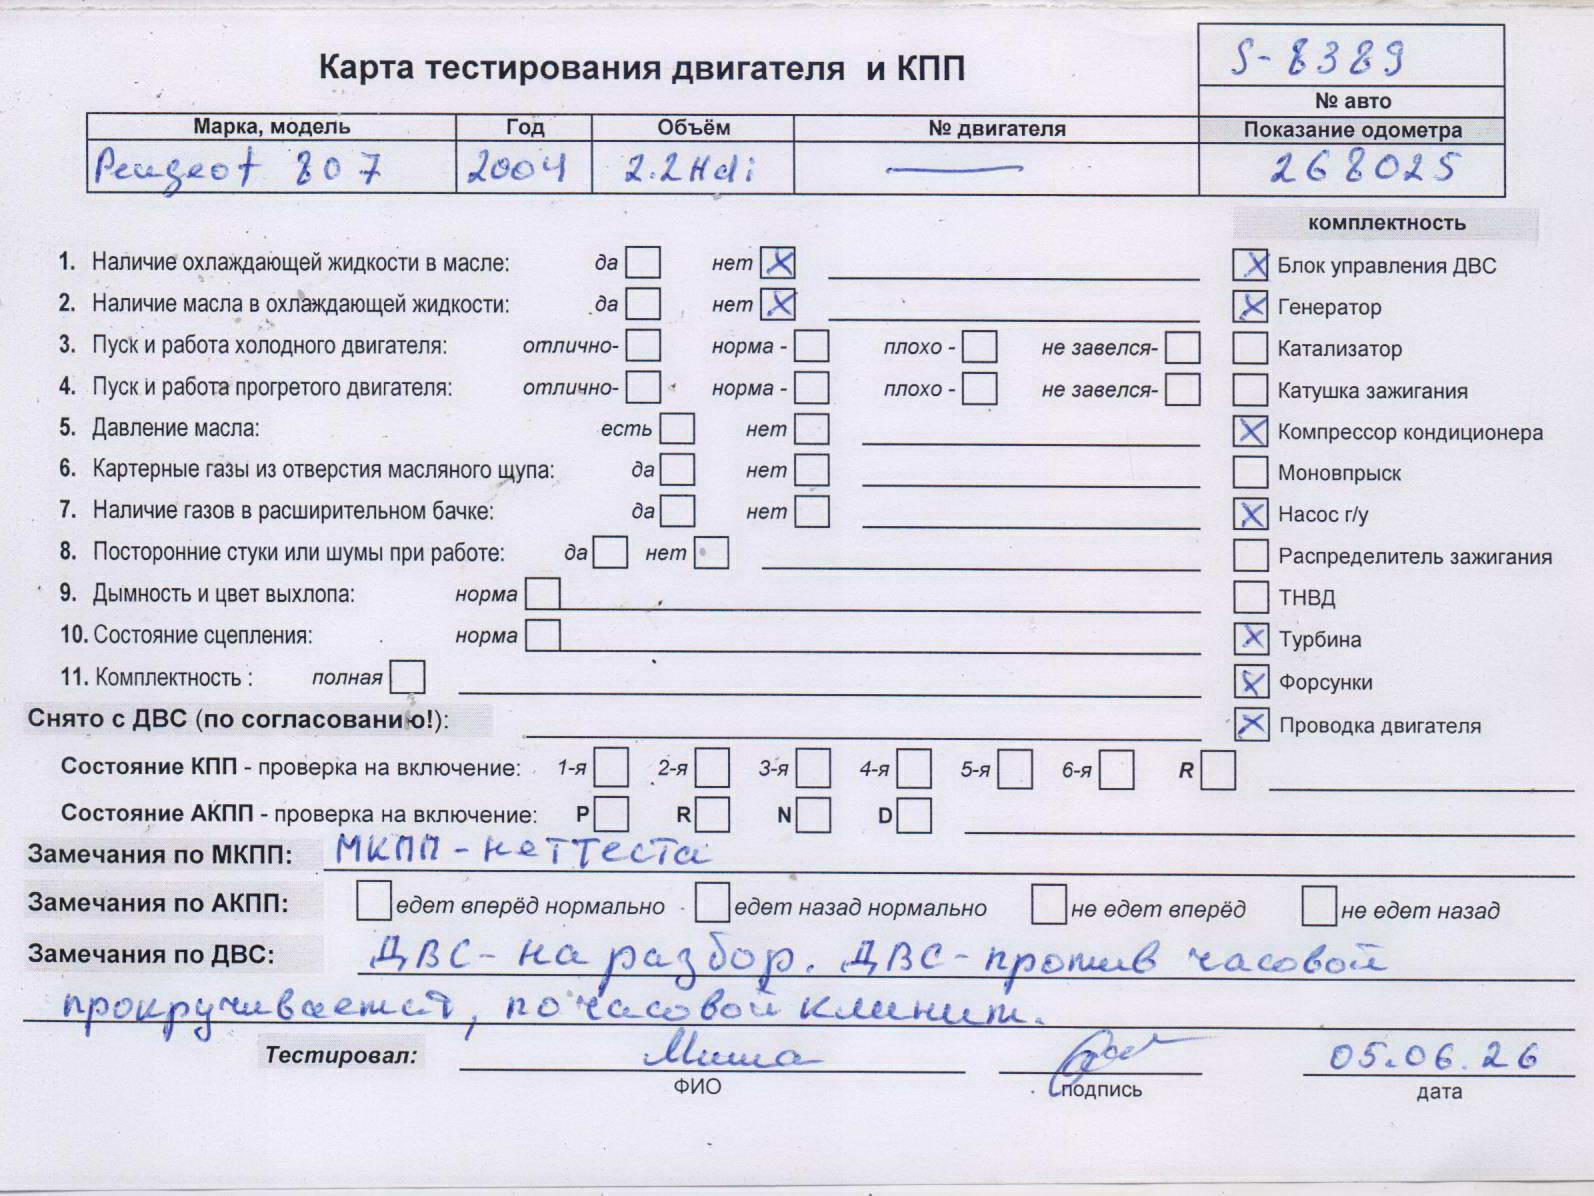 S-8389
Карта тестирования двигателя и КПП
№ авто
Марка, модель Год Объём № двигателя Показание одометра
Peugeot 807 2004 2.2 Hdi — 268025
комплектность
1. Наличие охлаждающей жидкости в масле: да нет X X Блок управления ДВС
2. Наличие масла в охлаждающей жидкости: да нет X X Генератор
3. Пуск и работа холодного двигателя: отлично- норма - плохо - не завелся- Катализатор
4. Пуск и работа прогретого двигателя: отлично- норма - плохо - не завелся- Катушка зажигания
5. Давление масла: есть нет X Компрессор кондиционера
6. Картерные газы из отверстия масляного щупа: да нет Моновпрыск
7. Наличие газов в расширительном бачке: да нет X Насос г/у
8. Посторонние стуки или шумы при работе: да нет Распределитель зажигания
9. Дымность и цвет выхлопа: норма ТНВД
10. Состояние сцепления: норма X Турбина
11. Комплектность : полная X Форсунки
Снято с ДВС (по согласованию!): X Проводка двигателя
Состояние КПП - проверка на включение: 1-я 2-я 3-я 4-я 5-я 6-я R
Состояние АКПП - проверка на включение: P R N D
Замечания по МКПП: МКПП - нет теста
Замечания по АКПП: едет вперёд нормально едет назад нормально не едет вперёд не едет назад
Замечания по ДВС: ДВС - на разбор. ДВС - против часовой
прокручивается, по часовой клинит.
Тестировал: Миша 05.06.26
ФИО подпись дата